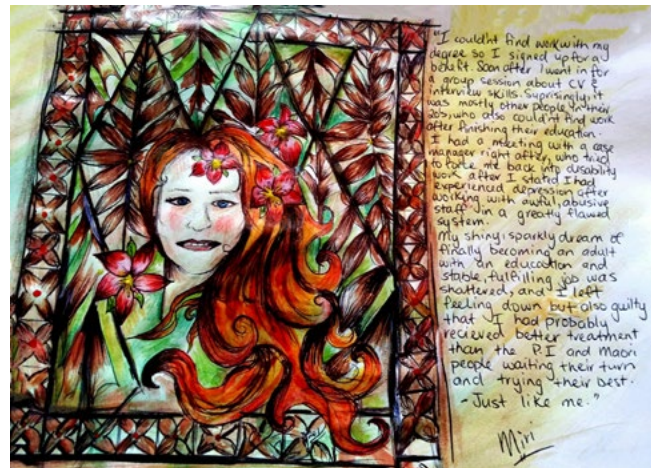 "I could'nt find work with my
degree so I signed up for a
benefit. Soon after I went in for
a group session about CV &
interview skills. Suprisingly it
was mostly other people in their
20s, who also could'nt find work
after finishing their education.
I had a meeting with a case
manager right after, who tried
to force me back into disability
work after I stated I had
experienced depression after
working with awful, abusive
staff in a greatly flawed
system.
My shiny, sparkly dream of
finally becoming an adult
with an education and
stable, fulfilling job was
shattered, and I left
feeling down but also guilty
that I had probably
recieved better treatment
than the P.I and Maori
people waiting their turn
and trying their best.
- Just like me."
Miri